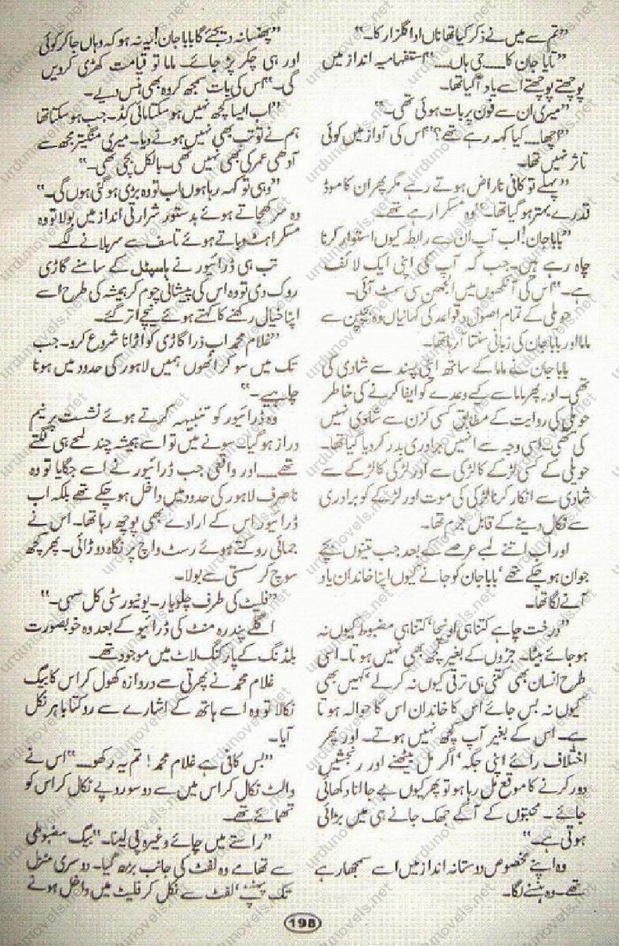 ”تم سے میں نے ذکر کیا تھا ناں ادا گلزار کا۔“
”تایا جان کا۔۔۔۔ جی ہاں۔۔۔۔“ استفہامیہ انداز میں
پوچھتے پوچھتے اسے یاد آگیا تھا۔
”میری ان سے فون پر بات ہوئی تھی۔“
”اچھا۔۔۔ کیا کہہ رہے تھے؟“ اس کی آواز میں کوئی
تاثر نہیں تھا۔
”پہلے تو کافی ناراض ہوتے رہے مگر پھر ان کا موڈ
قدرے بہتر ہو گیا تھا۔“ وہ مسکرا رہے تھے۔
”بابا جان! اب آپ ان سے رابطہ کیوں استوار کرنا
چاہ رہے ہیں۔ جب کہ آپ کی اپنی ایک لائف
ہے۔“ اس کی آنکھوں میں الجھن سی سمٹ آئی۔
حویلی کے تمام اصول و قواعد کی کہانیاں وہ بچپن سے
ماما اور بابا جان کی زبانی سنتا آ رہا تھا۔
بابا جان نے ماما کے ساتھ اپنی پسند سے شادی کی
تھی۔ اور پھر ماما سے کیے وعدے کو ایفا کرنے کی خاطر
حویلی کی روایت کے مطابق کسی کزن سے شادی نہیں
کی تھی۔ اسی وجہ سے انہیں برادری بدر کر دیا گیا تھا۔
حویلی کے کسی لڑکے کا لڑکی سے اور لڑکی کا لڑکے سے
شادی سے انکار کرنا لڑکی کی موت اور لڑکے کو برادری
سے نکال دینے کے قابل جرم تھا۔
اور اب اتنے لمبے عرصے کے بعد جب تینوں بچے
جوان ہو چکے تھے‘ بابا جان کو جانے کیوں اپنا خاندان یاد
آنے لگا تھا۔
”درخت چاہے کتنا ہی اونچا‘ کتنا ہی مضبوط کیوں نہ
ہو جائے بیٹا۔ جڑوں کے بغیر کچھ بھی نہیں ہوتا۔ اسی
طرح انسان بھی کتنی ہی ترقی کیوں نہ کر لے‘ کہیں بھی
کیوں نہ بس جائے اس کا خاندان اس کا حوالہ ہوتا
ہے۔ اس کے بغیر آپ کچھ نہیں ہوتے۔ اور پھر
اختلاف رائے اپنی جگہ‘ اگر مل بیٹھنے اور رنجشیں
دور کرنے کا موقع مل رہا ہو تو پھر کیوں بے جا انا دکھائی
جائے۔ محبتوں کے آگے جھک جانے ہی میں بڑائی
ہوتی ہے۔“
وہ اپنے مخصوص دوستانہ انداز میں اسے سمجھا رہے
تھے۔ وہ ہنسنے لگا۔
”پھنسا نہ دیجئے گا بابا جان! یہ نہ ہو کہ وہاں جا کر کوئی
اور ہی چکر پڑ جائے۔ ماما تو قیامت کھڑی کر دیں
گی۔“ اس کی بات سمجھ کر وہ بھی ہنس دیے۔
”اب ایسا کچھ نہیں ہو سکتا مائی کڈ۔ جب ہو سکتا تھا
ہم نے تو تب بھی نہیں ہونے دیا۔ میری منگیتر مجھ سے
آدھی عمر کی بھی نہیں تھی۔ بالکل بچی تھی۔“
”وہی تو کہہ رہا ہوں اب تو وہ بڑی ہو گئی ہوں گی۔“
وہ سر کھجاتے ہوئے بدستور شرارتی انداز میں بولا تو وہ
مسکراہٹ دباتے ہوئے تاسف سے سر ہلانے لگے۔
تب ہی ڈرائیور نے ہاسپٹل کے سامنے گاڑی
روک دی تو وہ اس کی پیشانی چوم کر ہمیشہ کی طرح اسے
اپنا خیال رکھنے کا کہتے ہوئے نیچے اتر گئے۔
”غلام محمد اب ذرا گاڑی کو اڑانا شروع کرو۔ جب
تک میں سو کر اٹھوں ہمیں لاہور کی حدود میں ہونا
چاہیے۔“
وہ ڈرائیور کو تنبیہہ کرتے ہوئے نشست پر نیم
دراز ہو گیا۔ سونے میں تو اسے ہمیشہ چند لمحے ہی لگتے
تھے۔۔۔ اور واقعی جب ڈرائیور نے اسے جگایا تو وہ
نا صرف لاہور کی حدود میں داخل ہو چکے تھے بلکہ اب
ڈرائیور اس کے ارادے بھی پوچھ رہا تھا۔ اس نے
جمائی روکتے ہوئے رسٹ واچ پر نگاہ دوڑائی۔ پھر کچھ
سوچ کر سستی سے بولا۔
”فلیٹ کی طرف چلو یار۔ یونیورسٹی کل سہی۔“
اگلے پندرہ منٹ کی ڈرائیو کے بعد وہ خوبصورت
بلڈنگ کے پارکنگ لاٹ میں موجود تھے۔
غلام محمد نے پھرتی سے دروازہ کھول کر اس کا بیگ
نکالا تو وہ اسے ہاتھ کے اشارے سے روکتا باہر نکل
آیا۔
”بس کافی ہے غلام محمد! تم یہ رکھو۔۔۔“ اس نے
والٹ نکال کر اس میں سے دو سو روپے نکال کر اس کو
تھمائے تھے۔
”راستے میں چائے وغیرہ پی لینا۔“ بیگ مضبوطی
سے تھامے وہ لفٹ کی جانب بڑھ گیا۔ دوسری منزل
تک پہنچ‘ لفٹ سے نکل کر فلیٹ میں داخل ہونے
198